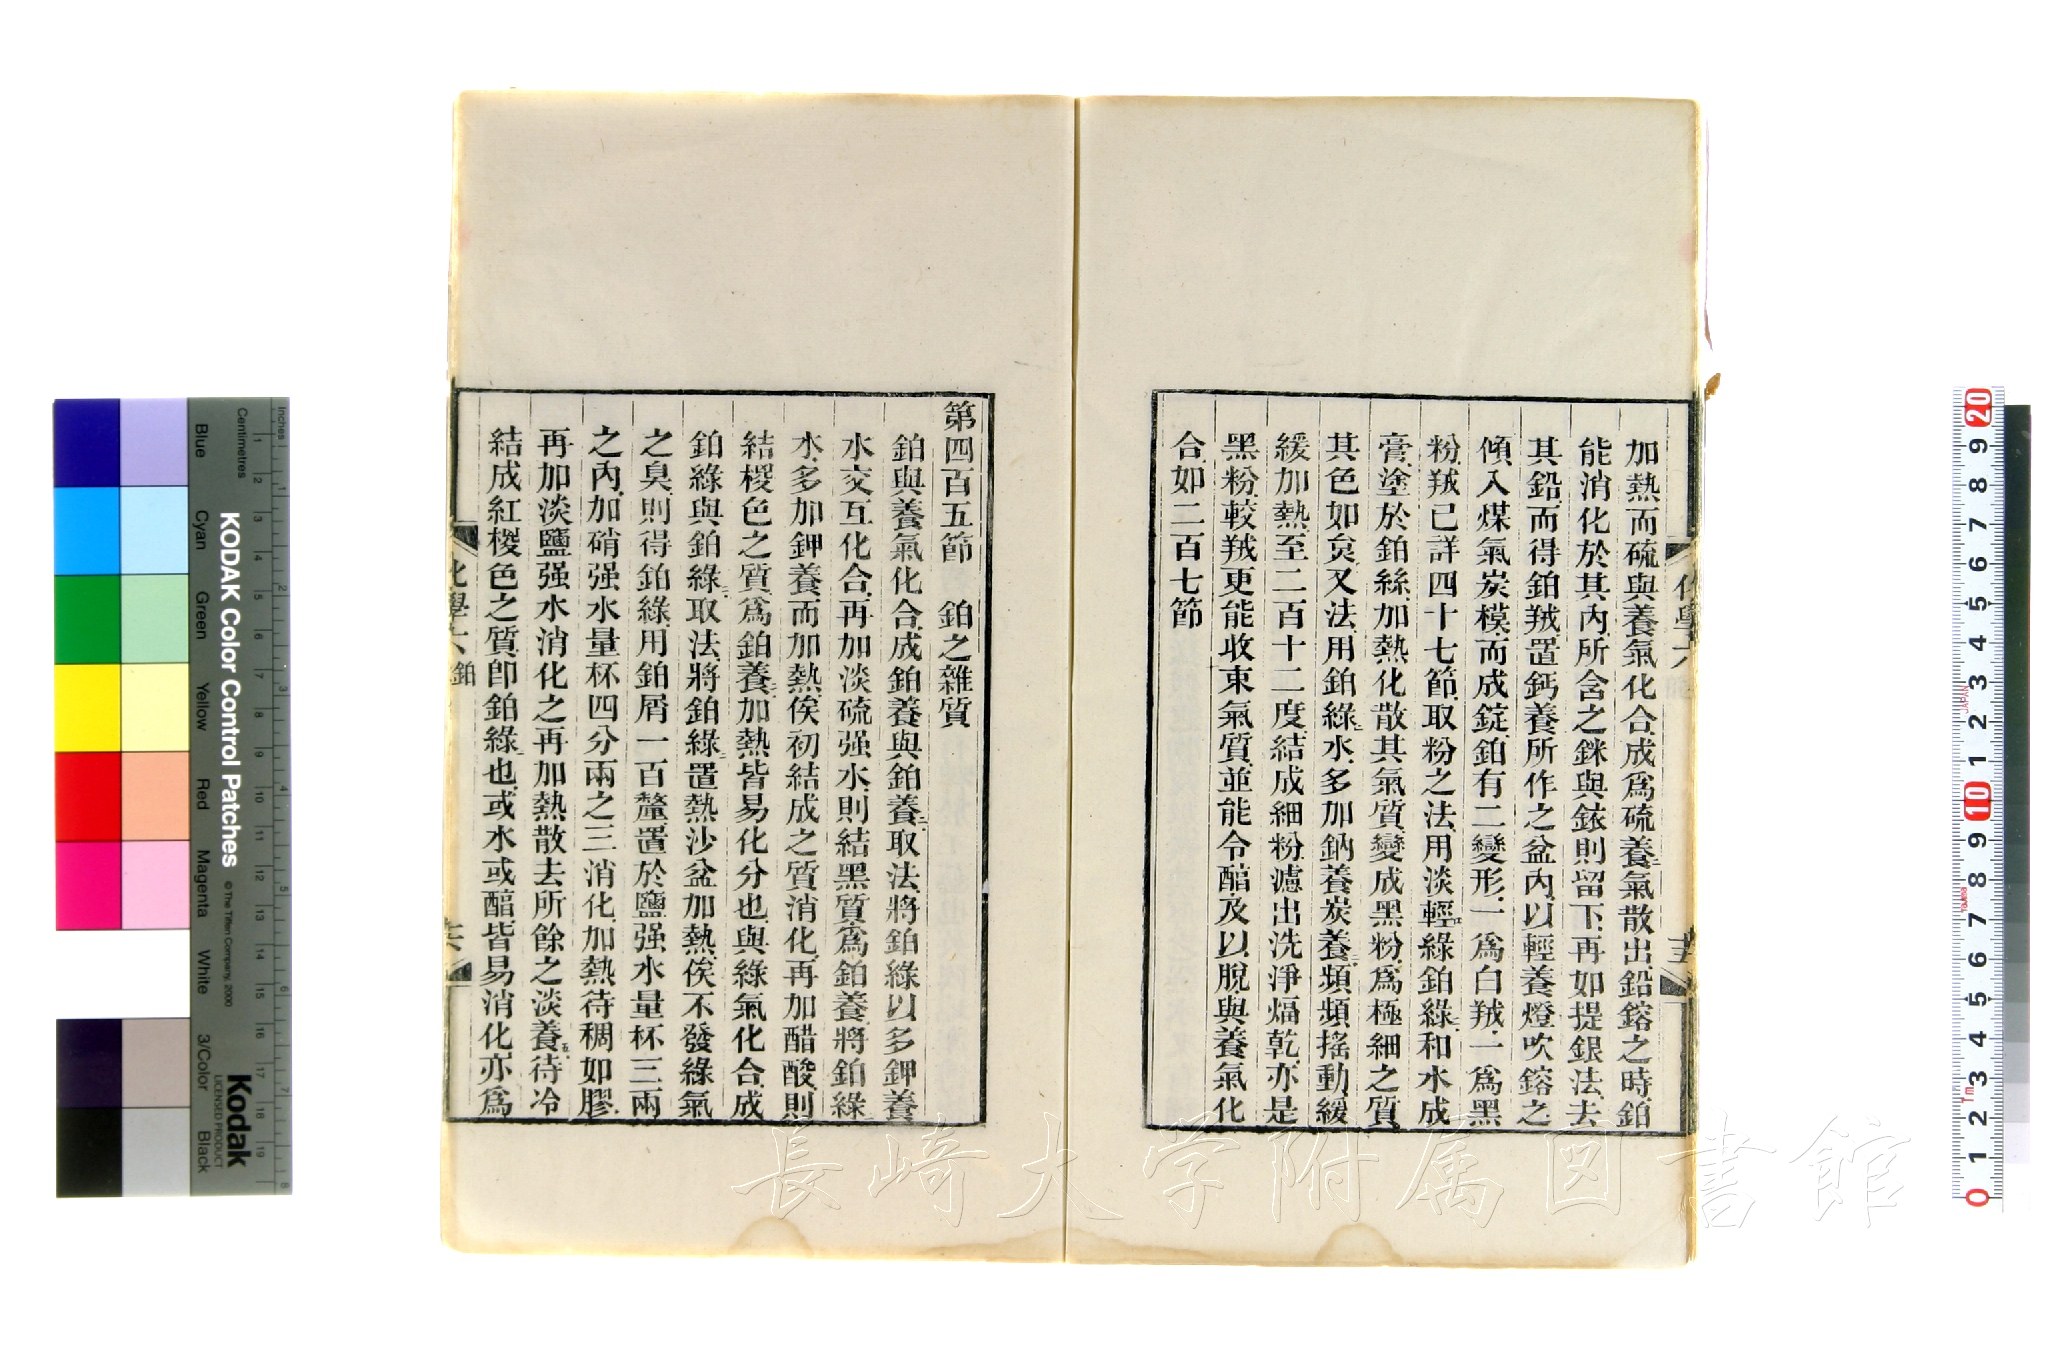 加熱而硫與養氣化合成爲硫養氣散出鉛鎔之時鉑
能消化於其內所含之銤與鋊則留下再如提銀法去
其鉛而得鉑羢置鈣養所作之盆內以輕養燈吹鎔之
傾入煤氣炭模而成錠鉑有二變形一爲白羢一爲黑
粉羢已詳四十七節取粉之法用淡輕綠鉑綠和水成
膏塗於鉑絲加熱化散其氣質變成黑粉爲極細之質
其色如炱又法用鉑綠水多加鈉養炭養頻頻搖動緩
緩加熱至二百十二度結成細粉濾出洗淨煏乾亦是
黑粉較羢更能收束氣質並能令醕及以脫與養氣化
合如二百七節
第四百五節 鉑之雜質
鉑與養氣化合成鉑養與鉑養取法將鉑綠以多鉀養
水交互化合再加淡硫强水則結黑質爲鉑養將鉑綠
水多加鉀養而加熱俟初結成之質消化再加醋酸則
結椶色之質爲鉑養加熱皆易化分也與綠氣化合成
鉑綠與鉑綠取法將鉑綠置熱沙盆加熱俟不發綠氣
之臭則得鉑綠用鉑屑一百釐置於鹽强水量杯三兩
之內加硝强水量杯四分兩之三消化加熱待稠如膠
再加淡鹽强水消化之再加熱散去所餘之淡養五待冷
結成紅椶色之質卽鉑綠也或水或醕皆易消化亦爲
化學六 鉑
KODAK Color Control Patches
© The Tiffen Company, 2000
Kodak
LICENSED PRODUCT
Inches
Centimetres
Blue
Cyan
Green
Yellow
Red
Magenta
White
3/Color
Black
長崎大学附属図書館
JAPAN